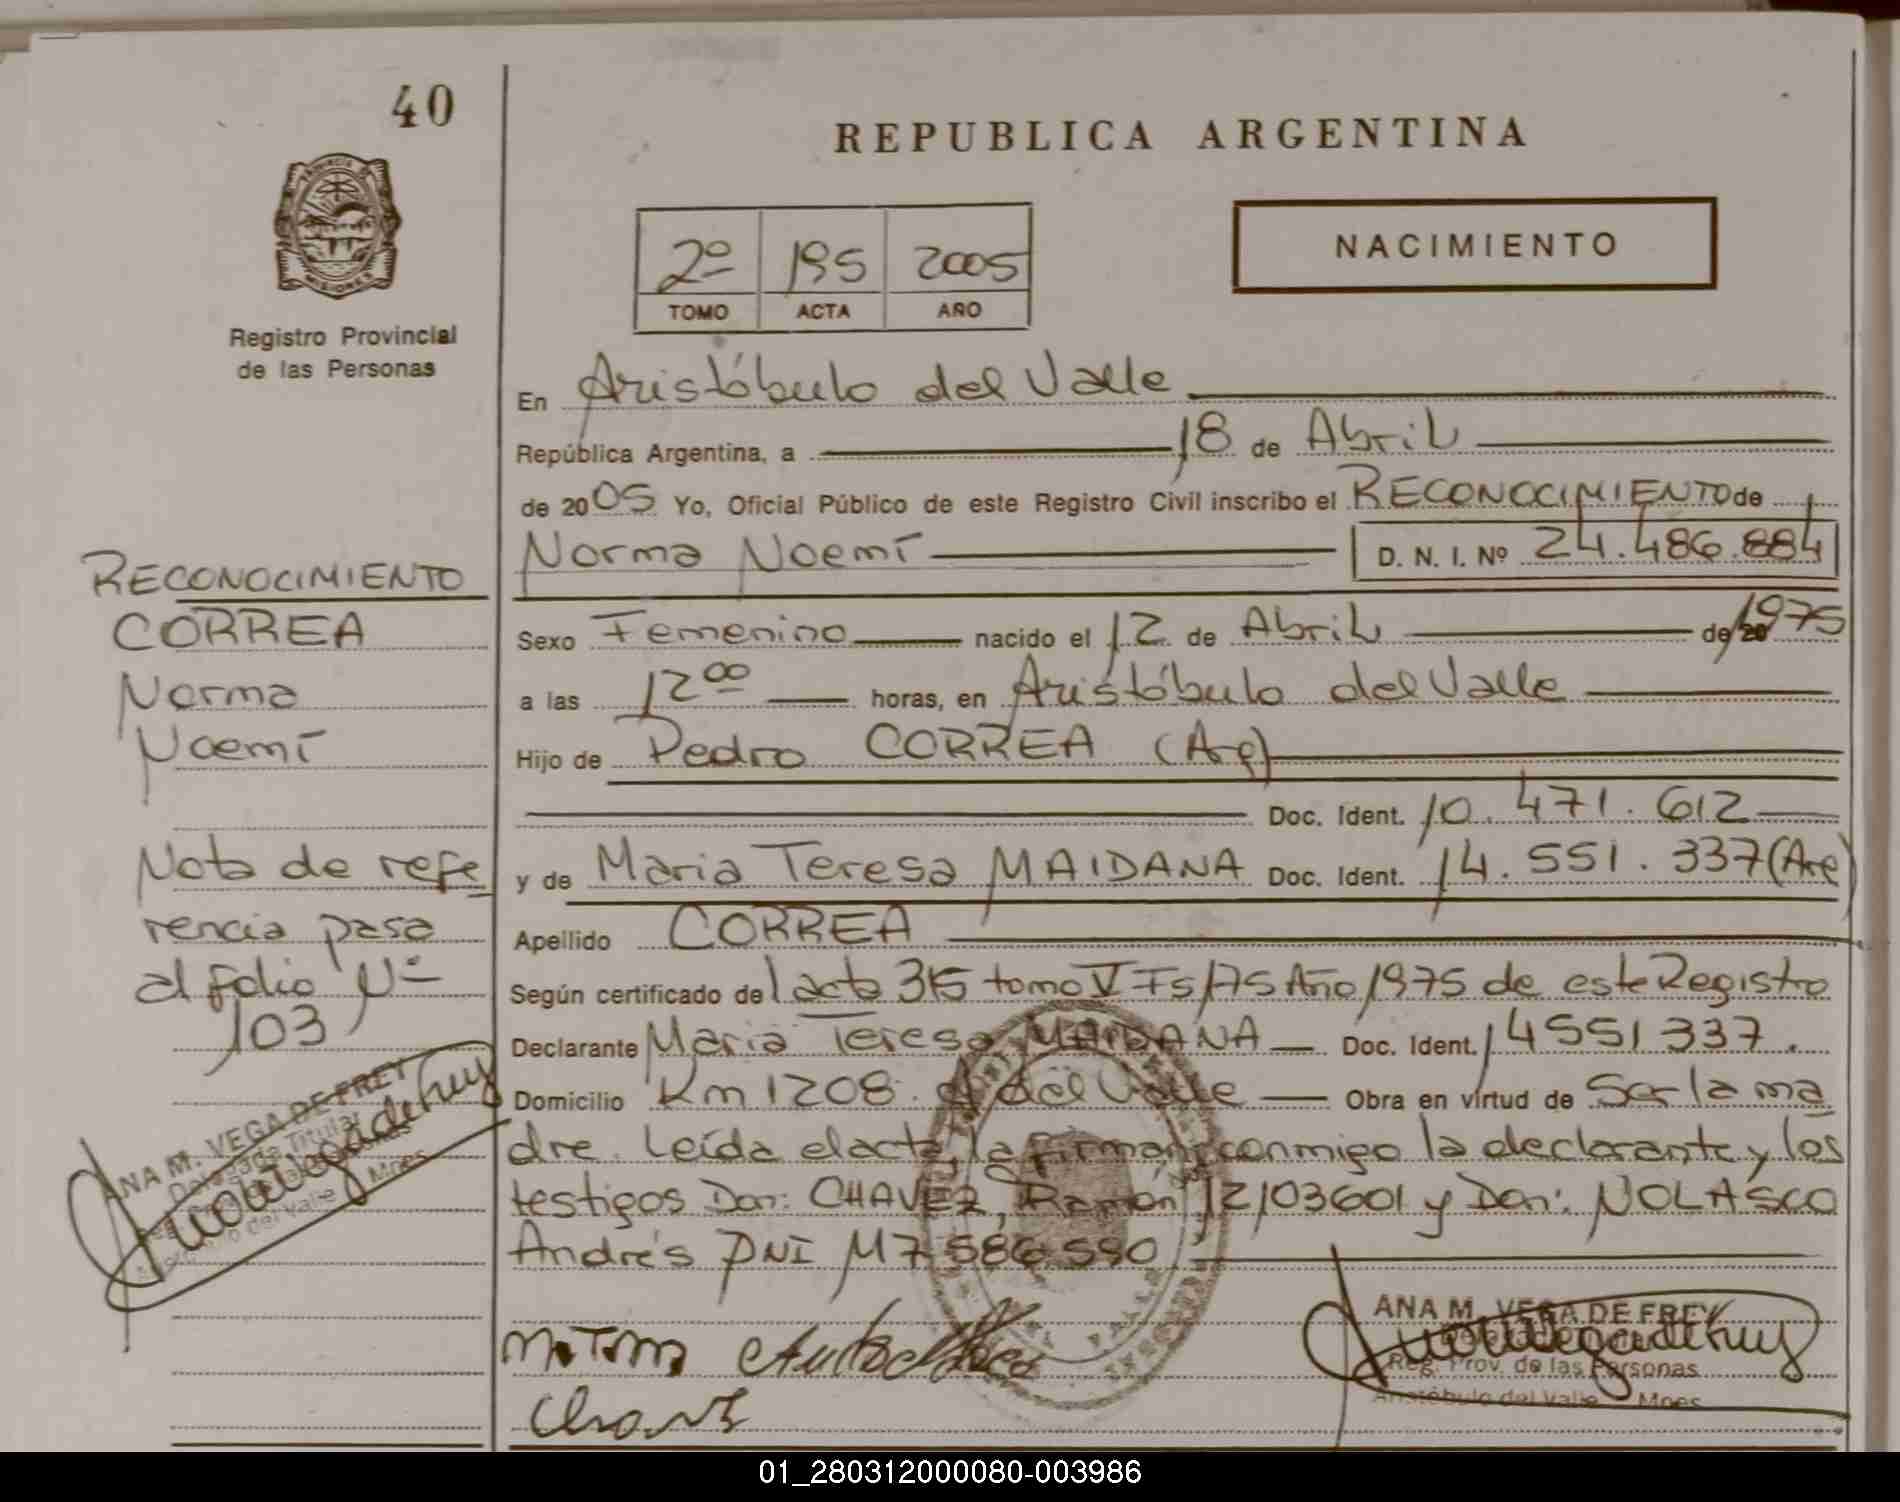 40
REPUBLICA ARGENTINA
PROVINCIA DE
MISIONES
Registro Provincial
de las Personas
2º 195 2005
TOMO ACTA AÑO
NACIMIENTO
En Aristóbulo del Valle
República Argentina, a 18 de Abril
de 2005 Yo, Oficial Público de este Registro Civil inscribo el RECONOCIMIENTO de
Norma Noemí D. N. I. Nº 24.486.884
Sexo Femenino nacido el 12 de Abril de 20 1975
a las 12 00 horas, en Aristóbulo del Valle
Hijo de Pedro CORREA (Arg)
Doc. Ident. 10.471.612
y de Maria Teresa MAIDANA Doc. Ident. 14.551.337 (Arg)
Apellido CORREA
Según certificado del acta 315 tomo V Fs 175 Año 1975 de este Registro
Declarante Maria Teresa MAIDANA Doc. Ident. 14551337.
Domicilio Km 1208. A del Valle Obra en virtud de Ser la ma
dre. Leída el acta, la firman conmigo la declarante y los
testigos Don: CHAVEZ, Ramón 12103601 y Don: NOLASCO
Andrés DNI M7.586.590
M.T.M
Chavez
ANA M. VEGA DE FREY
Reg. Prov. de las Personas
Aristóbulo del Valle Mnes
RECONOCIMIENTO
CORREA
Norma
Noemí
Nota de refe
rencia pasa
al folio Nº
103
ANA M. VEGA DE FREY
Delegada Titular
Aristóbulo del Valle Mnes
01_280312000080-003986